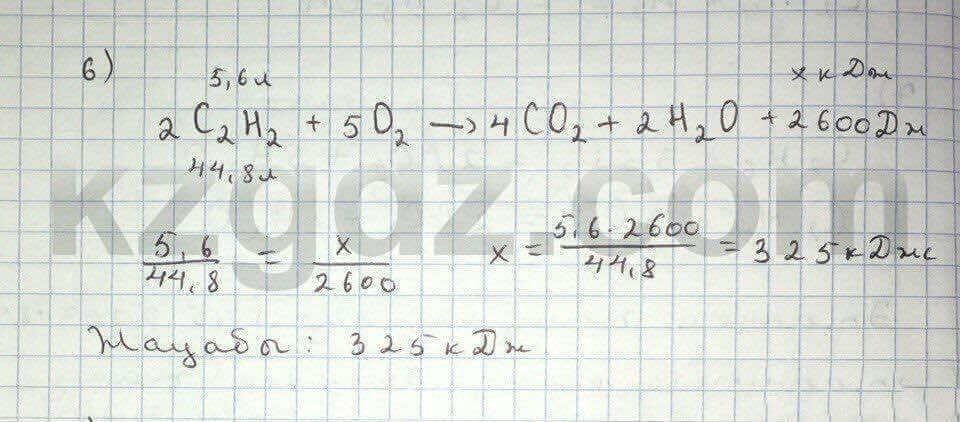 6)
5,6л x кДж
2C₂H₂ + 5O₂ → 4CO₂ + 2H₂O + 2600Дж
44,8л
5,6/44,8 = x/2600 x = 5,6·2600/44,8 = 325кДж
Жауабы: 325кДж
kzgdz.com